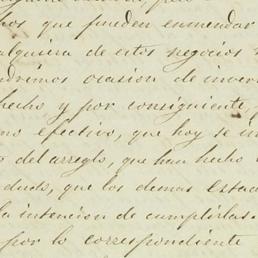 que pueden enmendar
alquiera de estos negocios
ocasion de inver
hecho y por consiguiente,
no efectivo, que hoy se in
del arreglo, que han hecho
duda, que los demas Estad
la intencion de cumplirlas.
por lo correspondiente